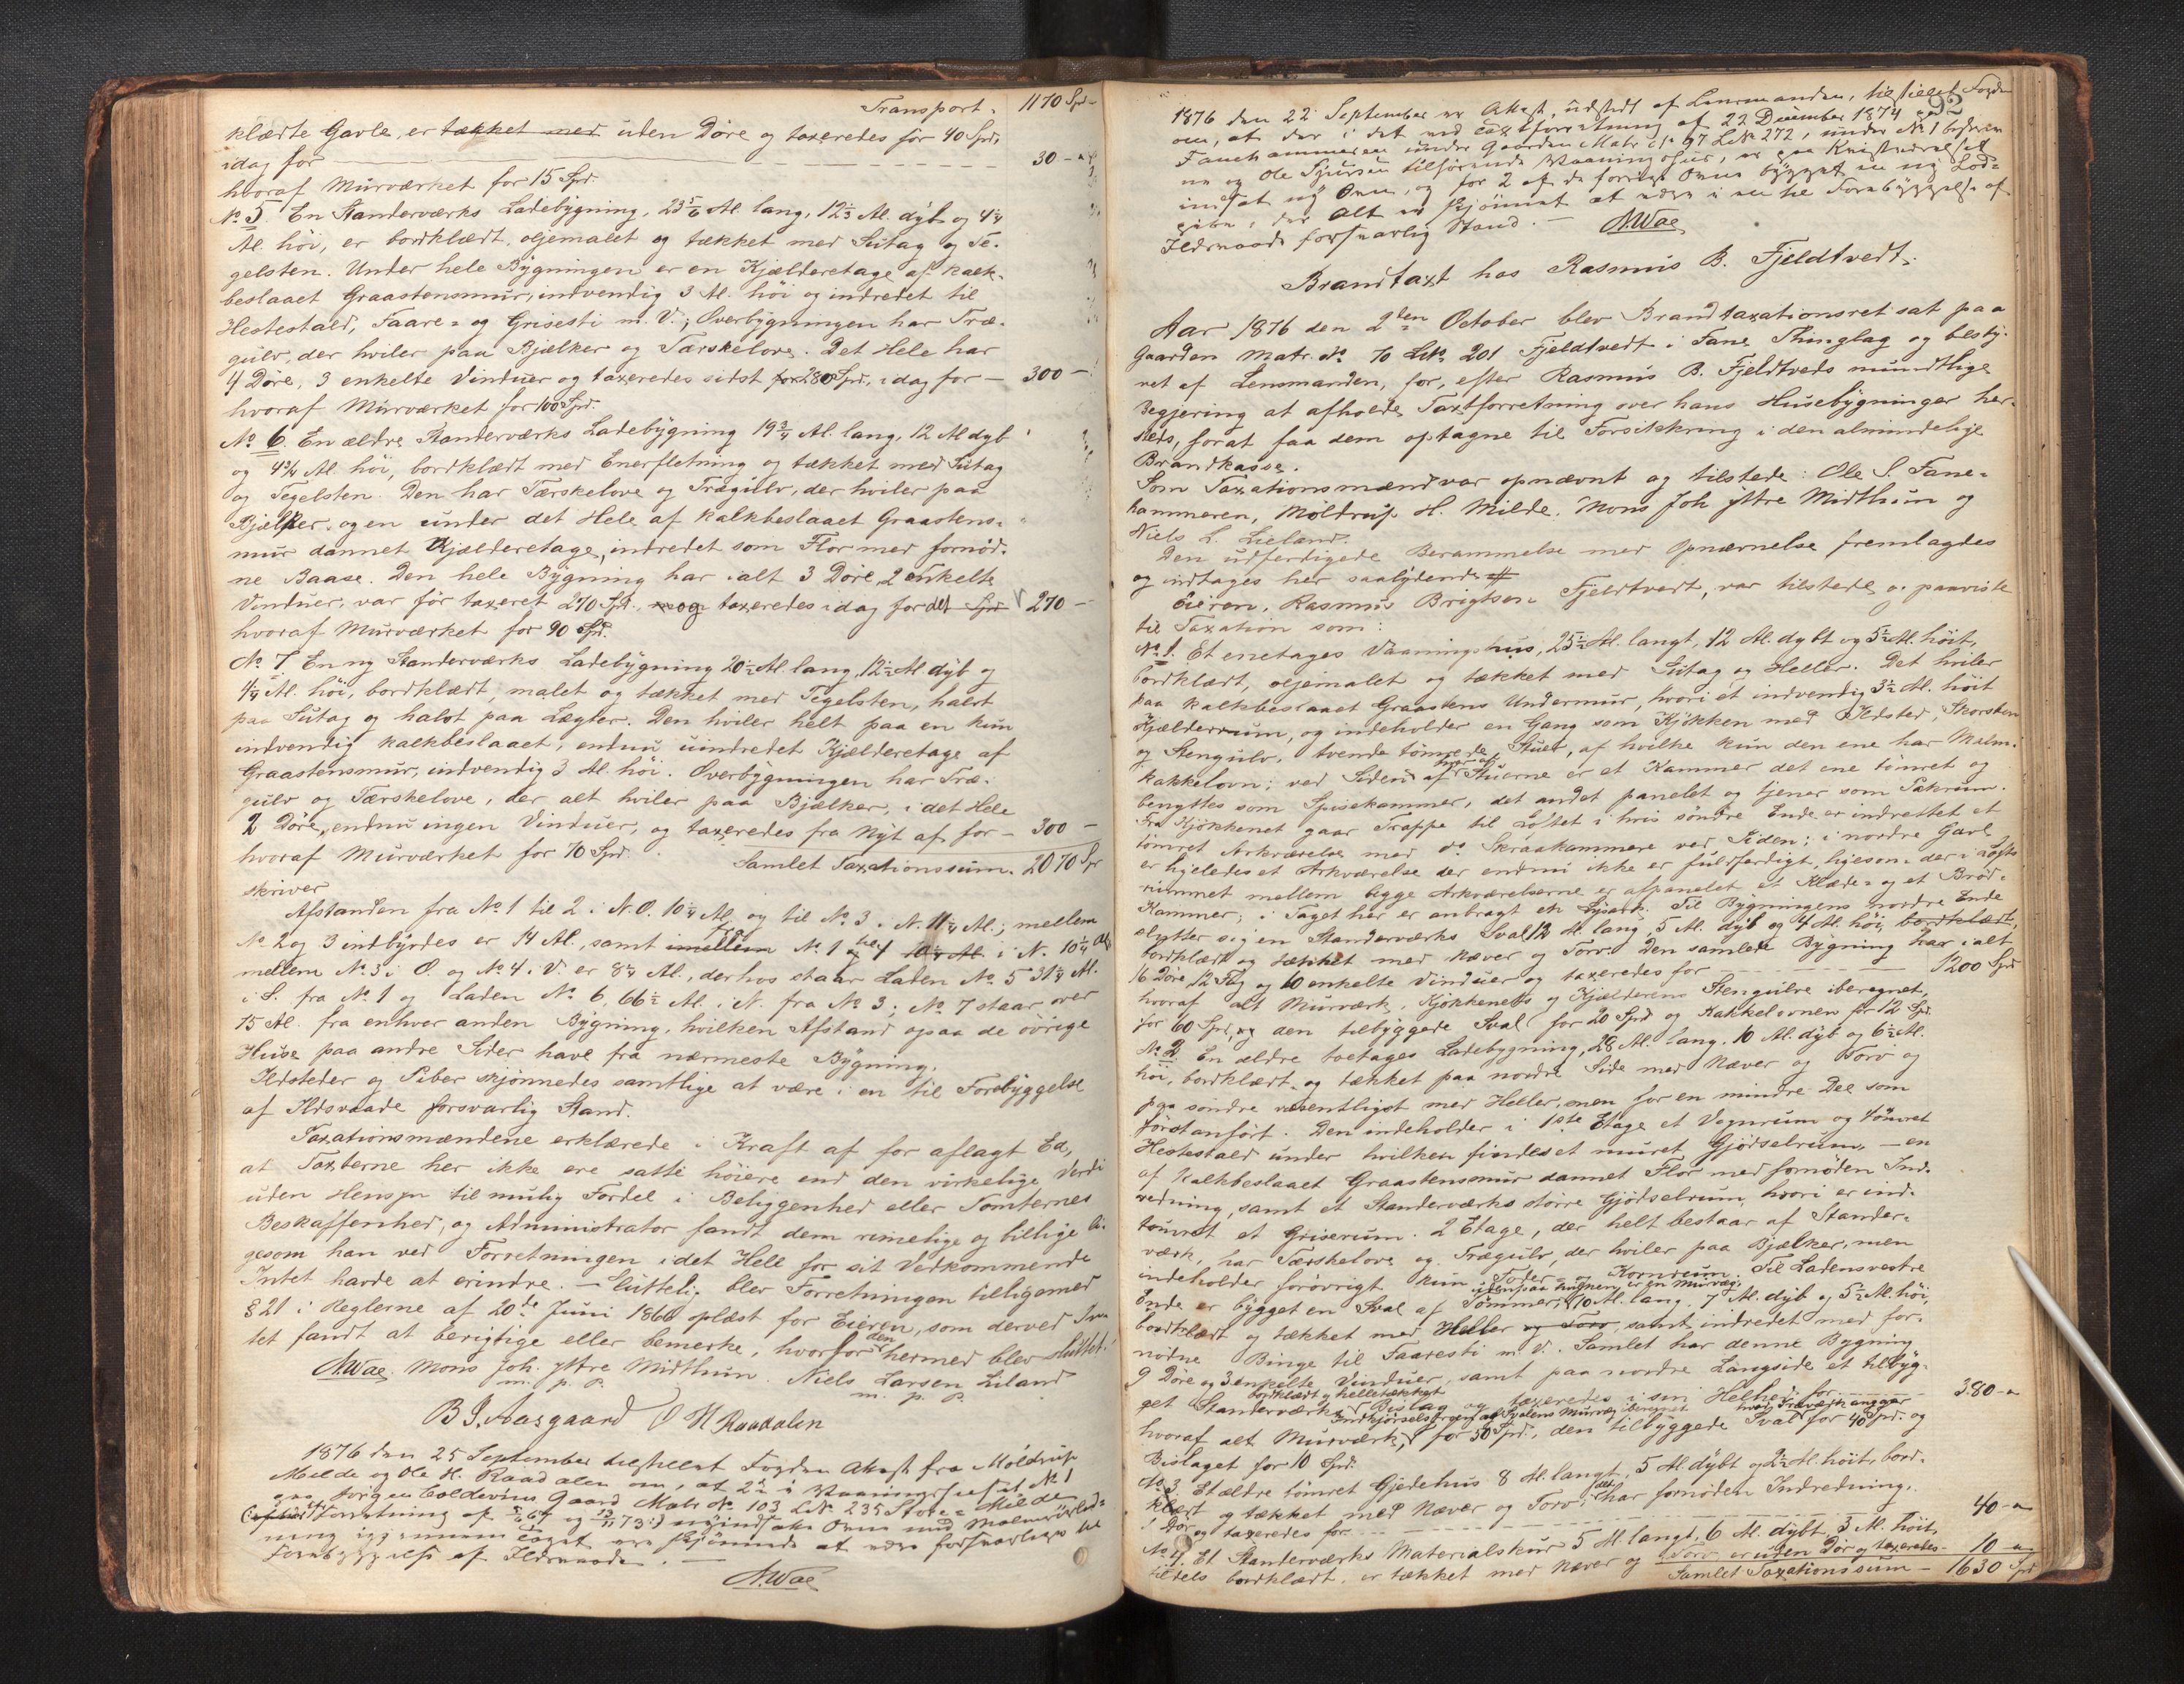 Transport. 1170 Spd
klædte Gavle, er tækket med uden Döre og taxeredes för 40 Spd,
idag for 30 -
hvoraf Murværket for 15 Spd.
No 5. En Standerværks Ladebygning, 23 5/6 Al. lang, 12 1/3 Al. dyb og 4 1/4
Al. höi, er bordklædt, oljemalet og tækket med Sutag og Te-
gelsten. Under hele Bygningen er en Kjælderetage af kalk-
beslaaet Graastensmur, indvendig 3 Al. höi og indredet til
Hestestald, Faare- og Grisesti m. V.; Overbygningen har Træ-
gulv, der hviler paa Bjælker og Tærskelove. Det Hele har
4 Döre, 3 enkelte Vinduer og taxeredes sidst for 280 Spd, idag for - 300 -
hvoraf Murværket for 100 Spd.
No 6. En ældre Standerværks Ladebygning 19 3/4 Al. lang, 12 Al dyb
og 4 3/4 Al. höi, bordklædt med Enerfletning og tækket med Sutag
og Tegelsten. Den har Tærskelove og Trægulv, der hviler paa
Bjælker, og en under det Hele af kalkbeslaaet Graastens-
mur dannet Kjælderetage, indredet som Flor med fornöd-
ne Baase. Den hele Bygning har ialt 3 Döre, 2 enkelte
Vinduer, var för taxeret 270 Spd. og taxeredes idag for det Spd 270 -
hvoraf Murværket for 90 Spd.
No 7 En ny Standerværks Ladebygning 20 1/2 Al lang, 12 1/2 Al dyb og
4 1/4 Al. höi, bordklædt, malet og tækket med Tegelsten, halvt
paa Sutag og halvt paa Lægter. Den hviler helt paa en kun
indvendig kalkbeslaaet, endnu uindredet Kjælderetage af
Graastensmur, indvendig 3 Al. höi. Overbygningen har Træ-
gulv og Tærskelove, der alt hviler paa Bjælker, i det Hele
2 Döre, endnu ingen Vinduer, og taxeredes fra Nyt af for - 300 -
hvoraf Murværket for 70 Spd. Samlet Taxationssum. 2070 Spd
skriver
Afstanden fra No 1 til 2 i N.O. 10 1/4 Al. og til No 3 i N. 11 1/4 Al.; mellem
No 2 og 3 indbyrdes er 14 Al., samt imellem Fra No 1 til 4 i N. 10 1/4 Al
mellem No 3 i O. og No 4 i V. er 8 1/4 Al., derhos staar Laden No 5 31 1/4 Al.
i S. fra No 1 og Laden No 6, 66 1/2 Al. i N. fra No 3; No 7 staar over
15 Al. fra enhver anden Bygning, hvilken Afstand ogsaa de övrige
Huse paa andre Sider have fra nærmeste Bygning.
Ildsteder og Piber skjönnedes samtlige at være i en til Forebyggelse
af Ildsvaade forsvarlig Stand.
Taxationsmændene erklærede i Kraft af för aflagt Ed,
at Taxterne her ikke ere satte höiere end den virkelige Verdi
uden Hensyn til mulig Fordel i Beliggenhed eller Tomternes
Beskaffenhed, og Administrator fandt dem rimelige og billige li-
gesom han ved Forretningen i det Hele for sit Vedkommende
Intet havde at erindre. - Sluttelig blev Forretningen tilligemed
§ 21 i Reglerne af 20de Juni 1866 oplæst for Eieren, som derved In-
tet fandt at berigtige eller bemerke, hvorfor den hermed blev sluttet.
A. Wae. Mons Joh. Yttre Midthun. Niels Larsen Liland
m. p. P. m. p. P.
B J. Aasgaard O H Raadalen
1876 den 25 September tilstillet Fogden Attest fra Möldrup
Milde og Ole H. Raadalen om, at 2 i Vaaningshuset No 1
paa Jörgen Coldevins Gaard Matr No 103 LNo 235 Store-Milde
Forretning af
ning igjennem Taget ere skjönnede at være forsvarlige til
Forebyggelse af Ildsvaade. -
A. Wae
92
1876 den 22 September er Attest, udstedt af Lensmanden, tilstillet Fogden
om, at der i det ved Taxtforretning af 22 December 1874 paa
Fanehammeren under Gaarden Matr. No 97 LNo 272, under No 1 beskrevne
og Ole Sjursen tilhörende Vaaningshus, er paa
indsat ny Ovn, og for 2 af de forrige Ovne bygget en ny Lod-
pibe; der Alt er skjönnet at være i en til Forebyggelse af
Ildsvaade forsvarlig Stand. - A. Wae
Brandtaxt hos Rasmus B. Fjeldtvedt.
Aar 1876 den 2den October blev Brandtaxationsret sat paa
Gaarden Matr. No 70 LNo 201 Fjeldtvedt i Fane Thinglag og besty-
ret af Lensmanden, for, efter Rasmus B. Fjeldtveds mundtlige
Begjering at afholde Taxtforretning over hans Husebygninger her-
steds, forat faa dem optagne til Forsikkring i den almindelige
Brandkasse.
Som Taxationsmænd var opnævnt og tilstede: Ole S. Fane-
hammeren, Möldrup H. Milde, Mons Joh Yttre Midthun og
Niels L. Lieland.
Den udferdigede Berammelse med Opnævnelse fremlagdes
og indtages her saalydende
Eieren, Rasmus Brigtsen Fjeldtvedt, var tilstede og paaviste
til Taxation som:
No 1. Et enetages Vaaningshus, 25 1/2 Al. langt, 12 Al. dybt og 5 1/2 Al. höit,
bordklædt, oljemalet og tækket med Sutag og Heller. Det hviler
paa kalkbeslaaet Graastens Undermur, hvori et indvendig 3 1/2 Al. höit
Kjælderrum, og indeholder en Gang som Kjökken med Ildsted, Skorsten
og Stengulv, tvende tömrede Stuer, af hvilke kun den ene har Malm-
kakkelovn; ved Siden af hver af Stuerne er et Kammer det ene tömret og
benyttes som Spisekammer, det andet panelet og tjener som Pakrum.
Fra Kjökkenet gaar Trappe til Loftet i hvis söndre Ende er indrettet et
tömret Arkværelse med do Skraakammere ved Siden; i nordre Gavl
er ligeledes et Arkværelse der endnu ikke er fuldferdigt, ligesom der i Lofts-
rummet mellem begge Arkværelserne er afpanelet et Klæde- og et Bröd-
Kammer; i Taget her er anbragt en Lysark. Til Bygningens nordre Ende
slutter sig en Standerværks Sval 12 Al. lang, 5 Al. dyb og 4 Al. höi, bordklædt,
bordklædt og tækket med Næver og Torv. Den samlede Bygning har ialt
16 Döre, 12 Fag og 10 enkelte Vinduer og taxeredes for 1200 Spd
hvoraf alt Murværk, Kjökkenets og Kjælderens Stengulve iberegnet,
for 60 Spd, og den tilbyggede Sval for 20 Spd og Kakkelovnen for 12 Spd.
No 2. En ældre toetages Ladebygning, 28 Al. lang, 10 Al. dyb og 6 1/2 Al.
höi, bordklædt, og tækket paa nordre Side med Næver og Torv og
paa söndre væsentligst med Heller, men for en mindre Del som
förstanfört. Den indeholder i 1ste Etage et Vognrum og tömret
Hestestald under hvilken findes et muret Gjödselrum, - en
af Kalkbeslaaet Graastensmur dannet Flor med fornöden Ind-
redning, samt et Standerværks större Gjödselrum, hvori er ind-
tömret et Griserum. 2 Etage, der helt bestaar af Stander-
værk, har Tærskelove og Trægulv, der hviler paa Bjælker, men
indeholder forövrigt kun Foder- og Kornrum. Til Ladens vestre
Ende er bygget en Sval af Tömmer, 10 Al. lang, 7 Al. dyb og 5 1/2 Al. höi,
bordklædt og tækket med Heller og Torv, samt indredet med for-
nödne Binge til Faaresti m. V. Samlet har denne Bygning
9 Döre og 3 enkelte Vinduer, samt paa nordre Langside et tilbyg-
get Standerværks bordklædt og helletækket Bislag og taxeredes i sin Helhed for 380 -
hvoraf alt Murværk, Indkjörselsbroen og Svalens Murvæg iberegnet for 50 Spd, den tilbyggede Sval hvad Træværk angaar for 40 Spd. og
Bislaget for 10 Spd.
No 3. Et ældre tömret Gjedehus 8 Al. langt, 5 Al. dybt og 2 1/2 Al. höit, bord-
klædt og tækket med Næver og Torv, har fornöden Indredning,
1 Dör og taxeredes for 40 -
No 4. Et Standerværks Materialskur 5 Al. langt, 6 Al. dybt, 3 Al. höit,
tildels bordklædt, er tækket med Næver og Torv er uden Dör og taxeredes - 10 -
Samlet Taxationssum - 1630 Spd